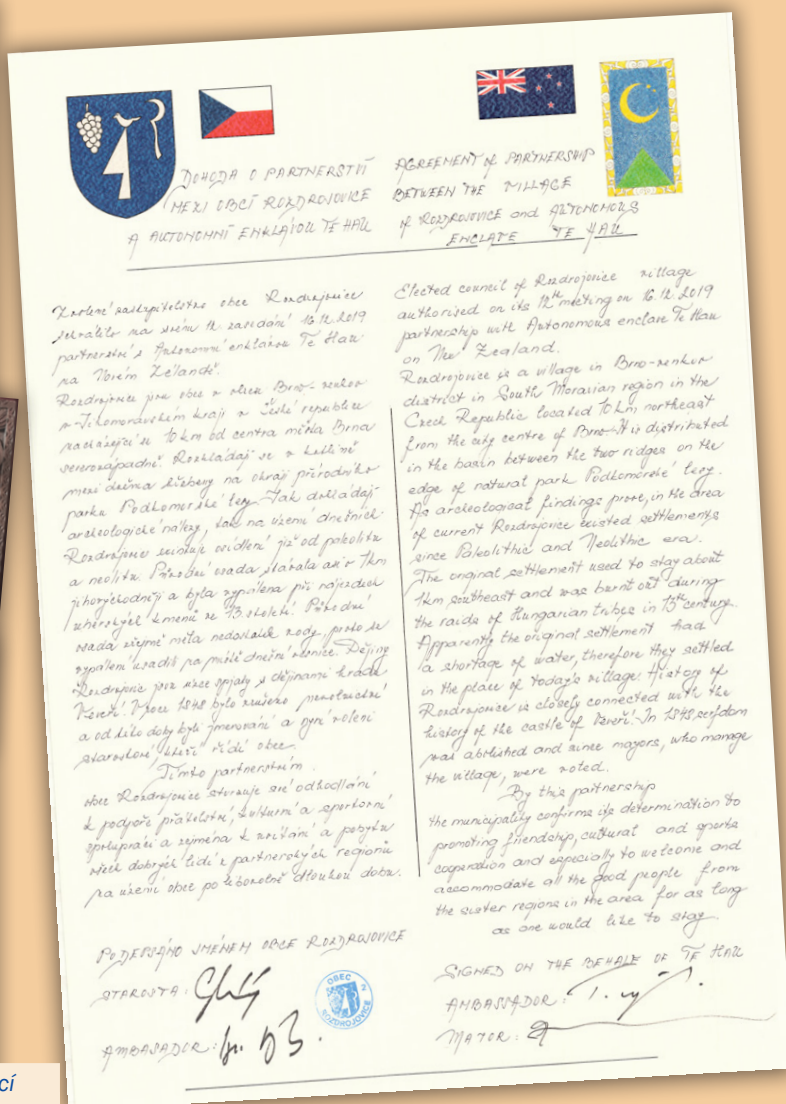 DOHODA O PARTNERSTVÍ
MEZI OBCÍ ROZDROJOVICE
A AUTONOMNÍ ENKLÁVOU TE HAU
AGREEMENT of PARTNERSHIP
BETWEEN THE VILLAGE
of ROZDROJOVICE and AUTONOMOUS
ENCLAVE TE HAU
Zvolené zastupitelstvo obce Rozdrojovice
schválilo na svém 12. zasedání 16.12.2019
partnerství s Autonomní enklávou Te Hau
na Novém Zélandě.
Rozdrojovice jsou obec v okrese Brno-venkov
v Jihomoravském kraji v České republice
nacházející se 10 km od centra města Brna
severozápadně. Rozkládají se v kotlině
mezi dvěma hřebeny na okraji přírodního
parku Podkomorské lesy. Jak dokládají
archeologické nálezy, tak na území dnešních
Rozdrojovic existuje osídlení již od paleolitu
a neolitu. Původní osada stávala asi o 1km
jihovýchodněji a byla vypálena při nájezdech
uherských kmenů ve 13. století. Původní
osada zřejmě měla nedostatek vody, proto se
vypálení usadili na místě dnešní vesnice. Dějiny
Rozdrojovic jsou úzce spjaty s dějinami hradu
Veveří. V roce 1848 bylo zrušeno nevolnictví
a od této doby byli jmenováni a nyní voleni
starostové, kteří řídí obec.
Tímto partnerstvím
obec Rozdrojovice stvrzuje své odhodlání
k podpoře přátelství, kulturní a sportovní
spolupráci a zejména k uvítání a pobytu
všech dobrých lidí z partnerských regionů
na území obce po libovolně dlouhou dobu.
Elected council of Rozdrojovice village
authorised on its 12th meeting on 16.12.2019
partnership with Autonomous enclave Te Hau
on New Zealand.
Rozdrojovice is a village in Brno-venkov
district in South Moravian region in the
Czech Republic located 10 km northeast
from the city centre of Brno. It is distributed
in the basin between the two ridges on the
edge of natural park Podkomorské lesy.
As archeological findings prove, in the area
of current Rozdrojovice existed settlements
since Paleolithic and Neolithic era.
The original settlement used to stay about
1km southeast and was burnt out during
the raids of Hungarian tribes in 13th century.
Apparently the original settlement had
a shortage of water, therefore they settled
in the place of today's village. History of
Rozdrojovice is closely connected with the
history of the castle of Veveří. In 1848, serfdom
was abolished and since mayors, who manage
the village, were voted.
By this partnership
the municipality confirms its determination to
promoting friendship, cultural and sports
cooperation and especially to welcome and
accommodate all the good people from
the sister regions in the area for as long
as one would like to stay.
PODEPSÁNO JMÉNEM OBCE ROZDROJOVICE
STAROSTA:
AMBASADOR:
OBEC
ROZDROJOVICE
2
SIGNED ON THE BEHALF OF TE HAU
AMBASSADOR:
MAYOR:
cí